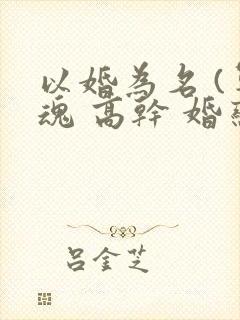 以婚為名(
魂 高幹 婚
吕金芝